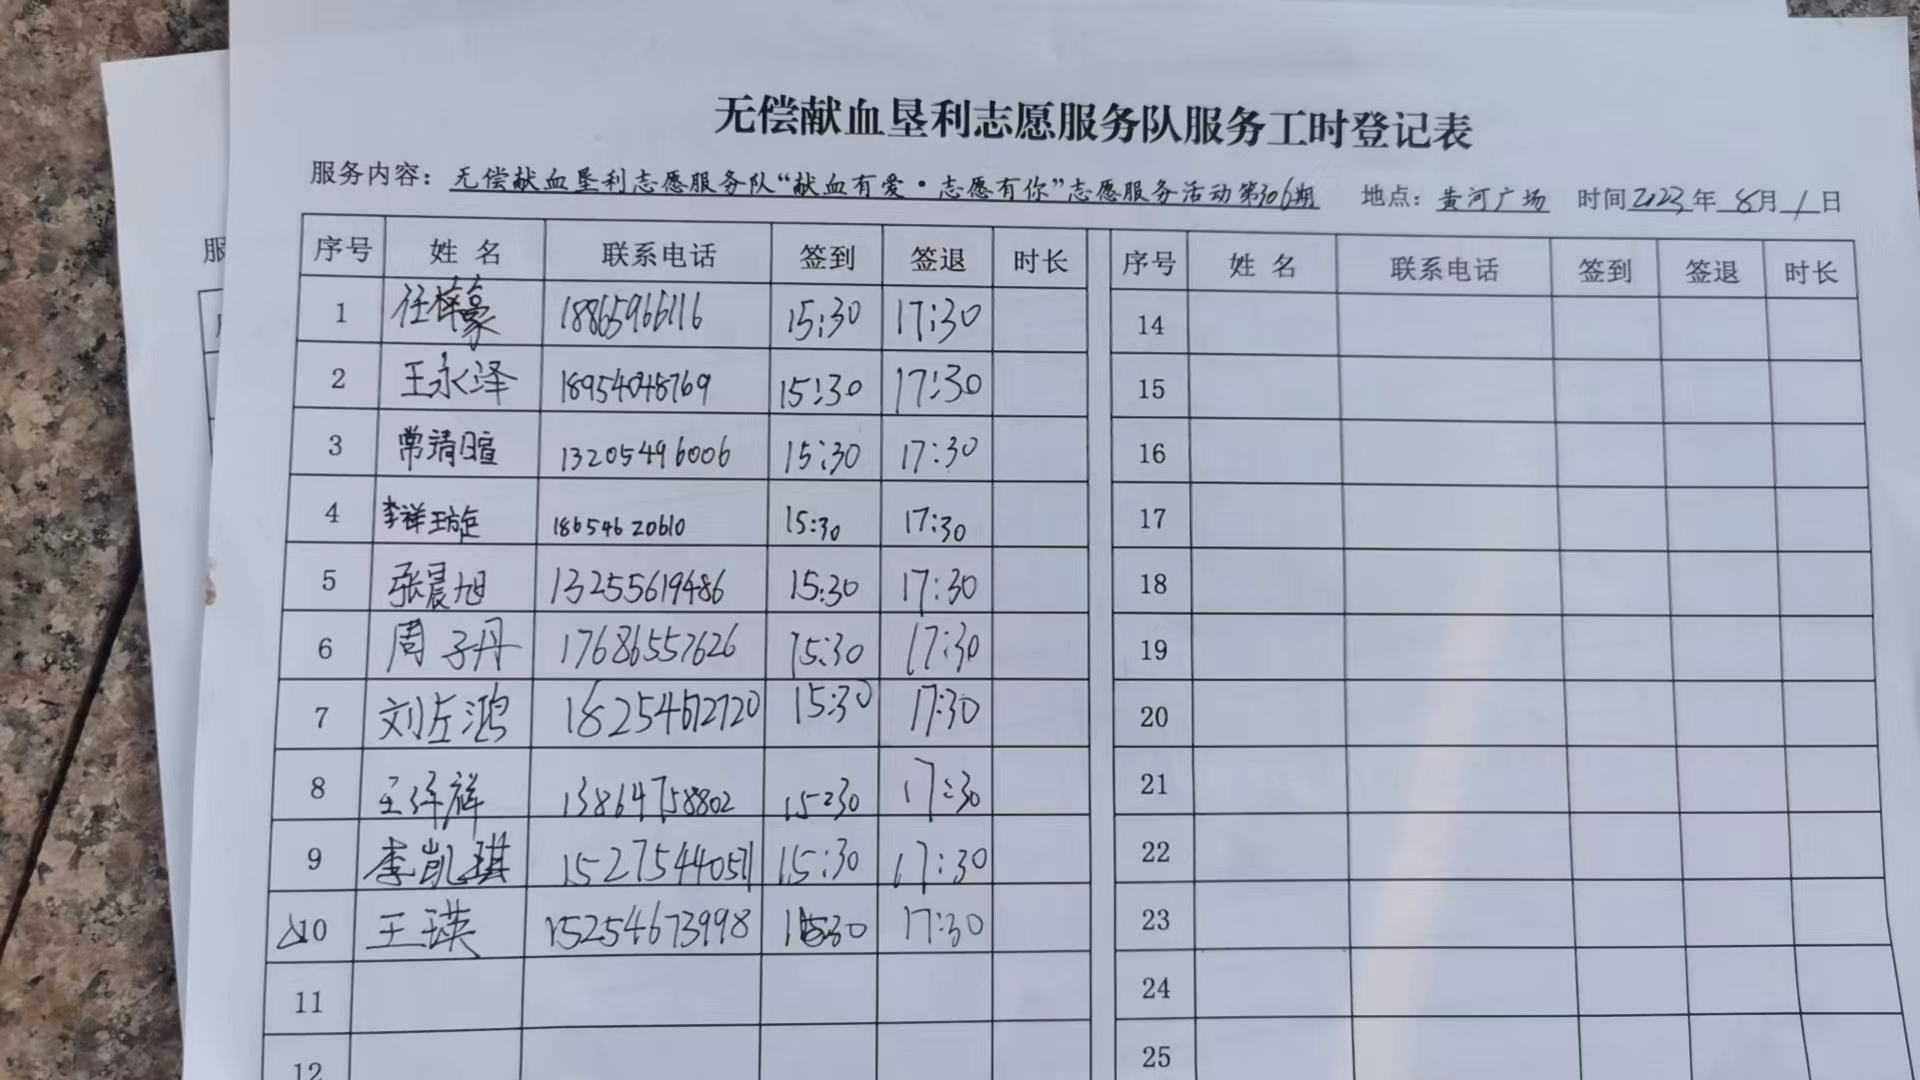 无偿献血垦利志愿服务队服务工时登记表
服务内容：无偿献血垦利志愿服务队“献血有爱·志愿有你”志愿服务活动第306期 地点：黄河广场 时间2023年8月1日
服
序号 姓名 联系电话 签到 签退 时长 序号 姓名 联系电话 签到 签退 时长
1 任梓豪 18865966116 15:30 17:30 14
2 王永泽 18954048769 15:30 17:30 15
3 常清暄 13205496006 15:30 17:30 16
4 李祥璇 18654620610 15:30 17:30 17
5 张晨旭 13255619486 15:30 17:30 18
6 周子丹 17686557626 15:30 17:30 19
7 刘左鸿 18254672720 15:30 17:30 20
8 王泽祥 13864758802 15:30 17:30 21
9 李凯琪 15275440571 15:30 17:30 22
10 王瑛 15254673998 15:30 17:30 23
11 24
12 25